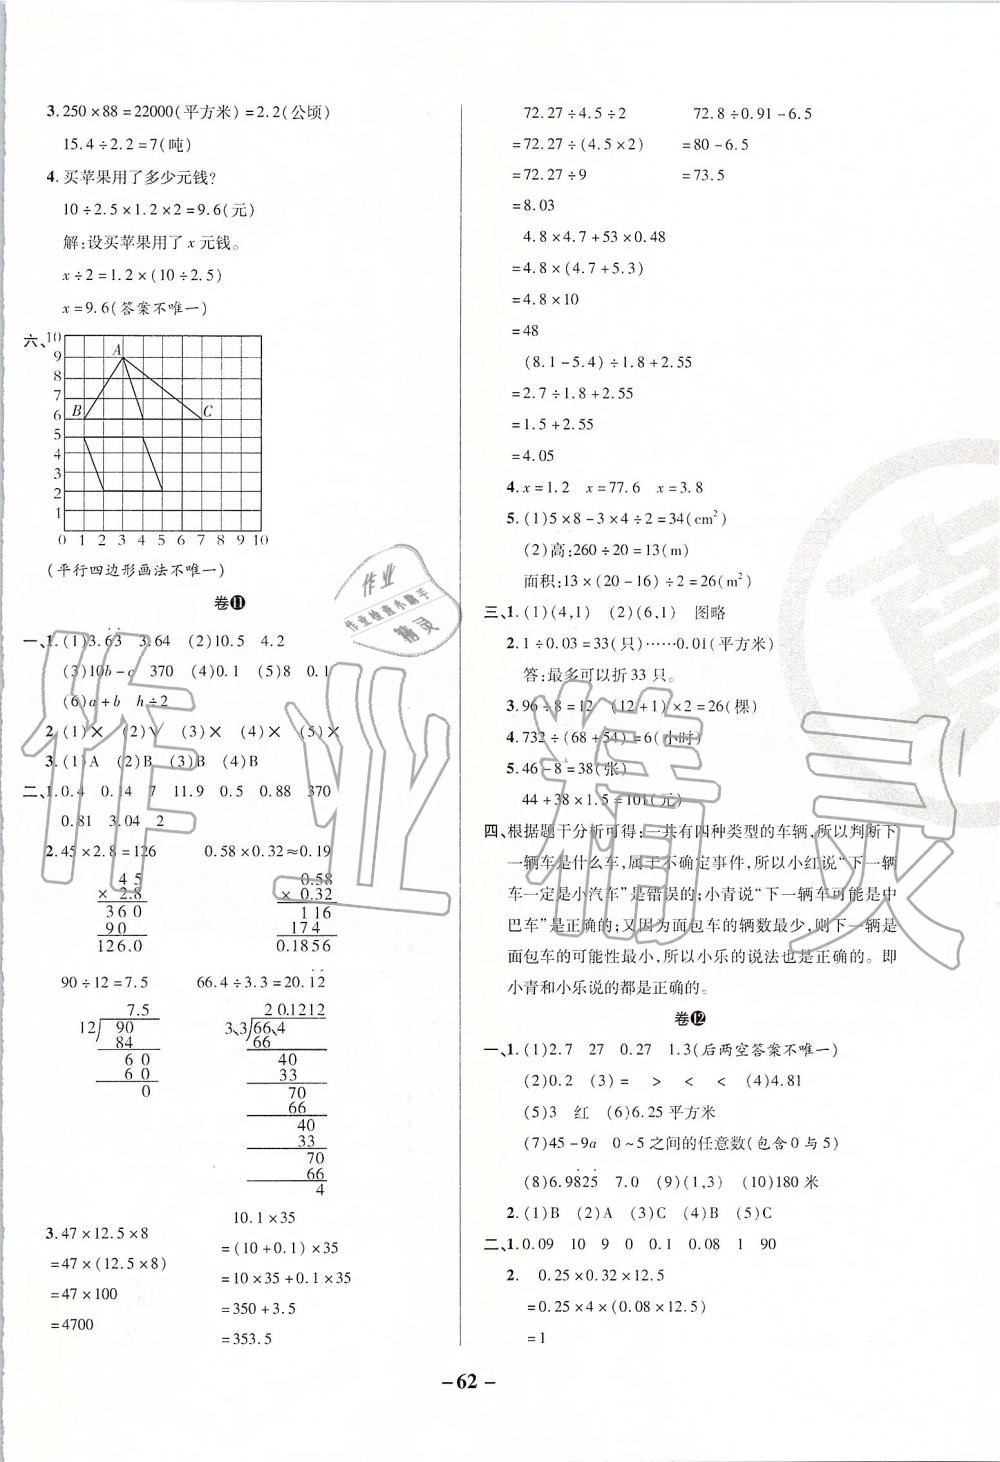 3. 250×88=22000(平方米)=2.2(公顷)
15.4÷2.2=7(吨)
4. 买苹果用了多少元钱?
10÷2.5×1.2×2=9.6(元)
解:设买苹果用了 x 元钱。
x÷2=1.2×(10÷2.5)
x=9.6(答案不唯一)
六、
10
9
8
7
6
5
4
3
2
1
A
B
C
0 1 2 3 4 5 6 7 8 9 10
(平行四边形画法不唯一)
卷⓫
一、1. (1)3.6̇3̇ 3.64 (2)10.5 4.2
(3)10b-c 370 (4)0.1 (5)8 0.1
(6)a+b h÷2
2. (1)× (2)√ (3)× (4)× (5)×
3. (1)A (2)B (3)B (4)B
二、1. 0.4 0.14 7 11.9 0.5 0.88 370
0.81 3.04 2
2. 45×2.8=126 0.58×0.32≈0.19
4 5 0.58
× 2.8 × 0.32
3 6 0 1 16
90 17 4
126.0 0.1856
90÷12=7.5 66.4÷3.3=20.1̇2̇
7.5 2 0.1212
12 90 3、3 66、4
84 66
6 0 40
6 0 33
0 70
66
40
33
70
66
4
3. 47×12.5×8
=47×(12.5×8)
=47×100
=4700
10.1×35
=(10+0.1)×35
=10×35+0.1×35
=350+3.5
=353.5
72.27÷4.5÷2 72.8÷0.91-6.5
=72.27÷(4.5×2) =80-6.5
=72.27÷9 =73.5
=8.03
4.8×4.7+53×0.48
=4.8×(4.7+5.3)
=4.8×10
=48
(8.1-5.4)÷1.8+2.55
=2.7÷1.8+2.55
=1.5+2.55
=4.05
4. x=1.2 x=77.6 x=3.8
5. (1)5×8-3×4÷2=34(cm²)
(2)高:260÷20=13(m)
面积:13×(20-16)÷2=26(m²)
三、1. (1)(4,1) (2)(6,1) 图略
2. 1÷0.03=33(只)……0.01(平方米)
答:最多可以折 33 只。
3. 96÷8=12 (12+1)×2=26(棵)
4. 732÷(68+54)=6(小时)
5. 46-8=38(张)
44+38×1.5=101(元)
四、根据题干分析可得:一共有四种类型的车辆,所以判断下
一辆车是什么车,属于不确定事件,所以小红说“下一辆
车一定是小汽车”是错误的;小青说“下一辆车可能是中
巴车”是正确的;又因为面包车的辆数最少,则下一辆是
面包车的可能性最小,所以小乐的说法也是正确的。即
小青和小乐说的都是正确的。
卷⓬
一、1. (1)2.7 27 0.27 1.3(后两空答案不唯一)
(2)0.2 (3)= > < < (4)4.81
(5)3 红 (6)6.25 平方米
(7)45-9a 0~5 之间的任意数(包含 0 与 5)
(8)6.9̇825̇ 7.0 (9)(1,3) (10)180 米
2. (1)B (2)A (3)C (4)B (5)C
二、1. 0.09 10 9 0 0.1 0.08 1 90
2. 0.25×0.32×12.5
=0.25×4×(0.08×12.5)
=1
-62-
作业
作业检查小助手
精灵
作业精灵